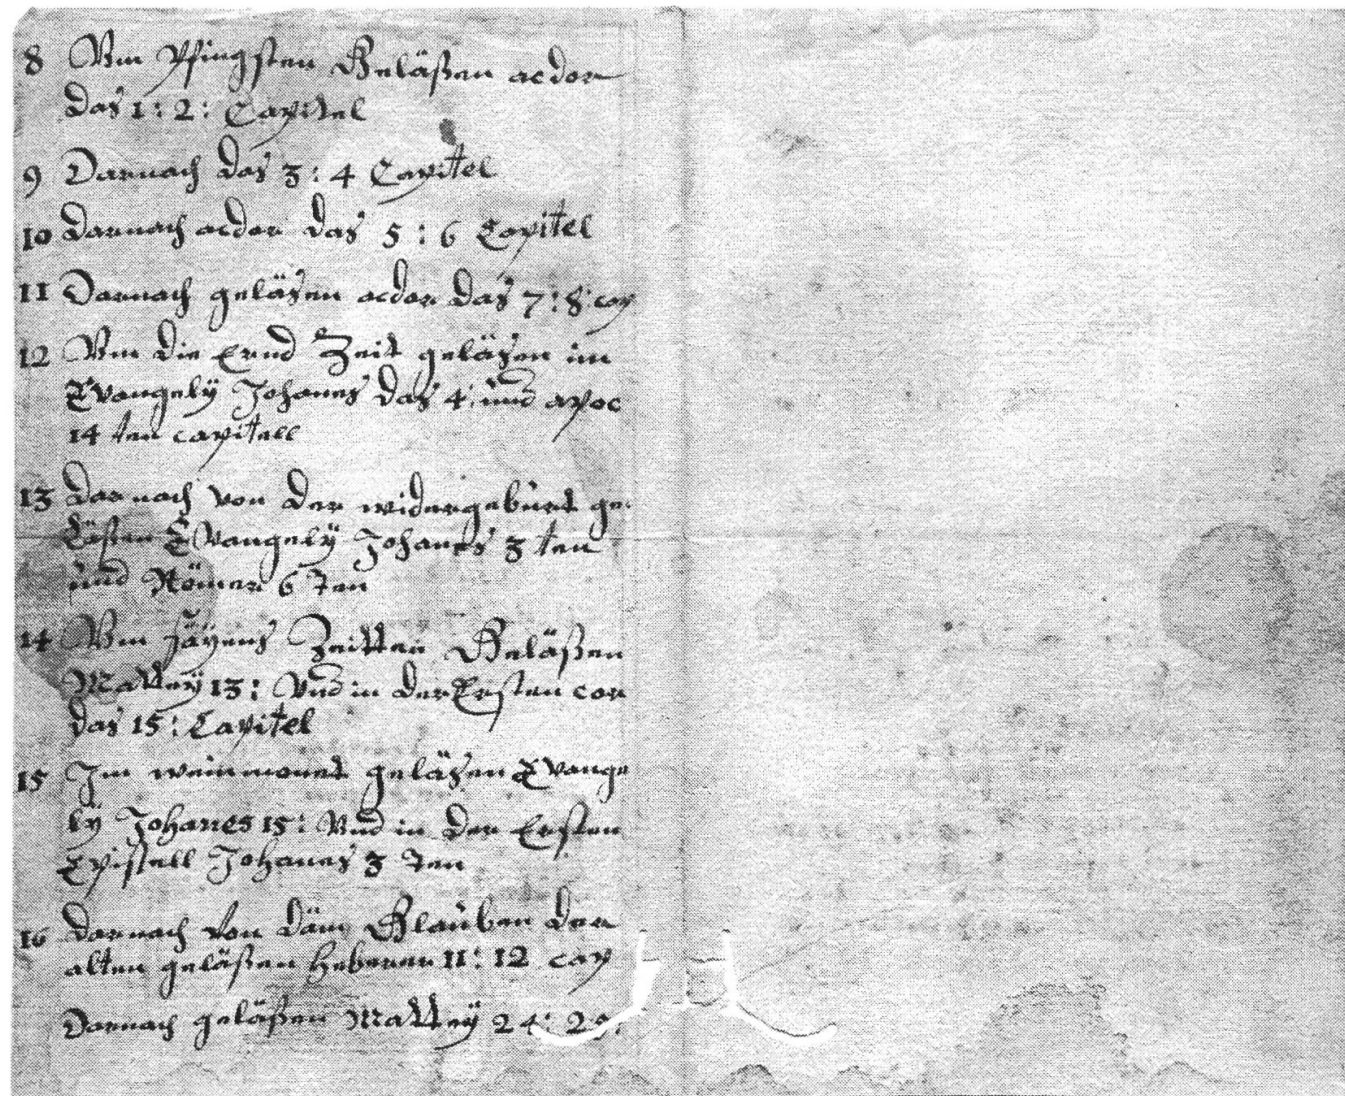 8 Vm Pfingsten Geläßen acdor
das 1: 2: Capitel
9 Darnach das 3: 4 Capitel
10 darnach acdor das 5: 6 Capitel
11 Darnach geläsen acdor das 7: 8: cap
12 Vm die Ernd Zeit geläsen im
Evangely Johanes das 4: und apoc
14 ten capitell
13 darnach von der widergebürt ge-
läßen Evangelÿ Johanes 3 ten
und Römer 6 ten
14 Vm säÿens Zeitten Geläßen
Mattey 13: Vnd in der Ersten cor
das 15: Capitel
15 Im weinmonet geläsen Evange
lÿ Johanes 15: Vnd in der Ersten
Epistell Johanes 3 ten
16 darnach von däm Glauben der
alten geläßen Hebereer 11: 12 cap
Darnach geläßen Matteÿ 24: 25: